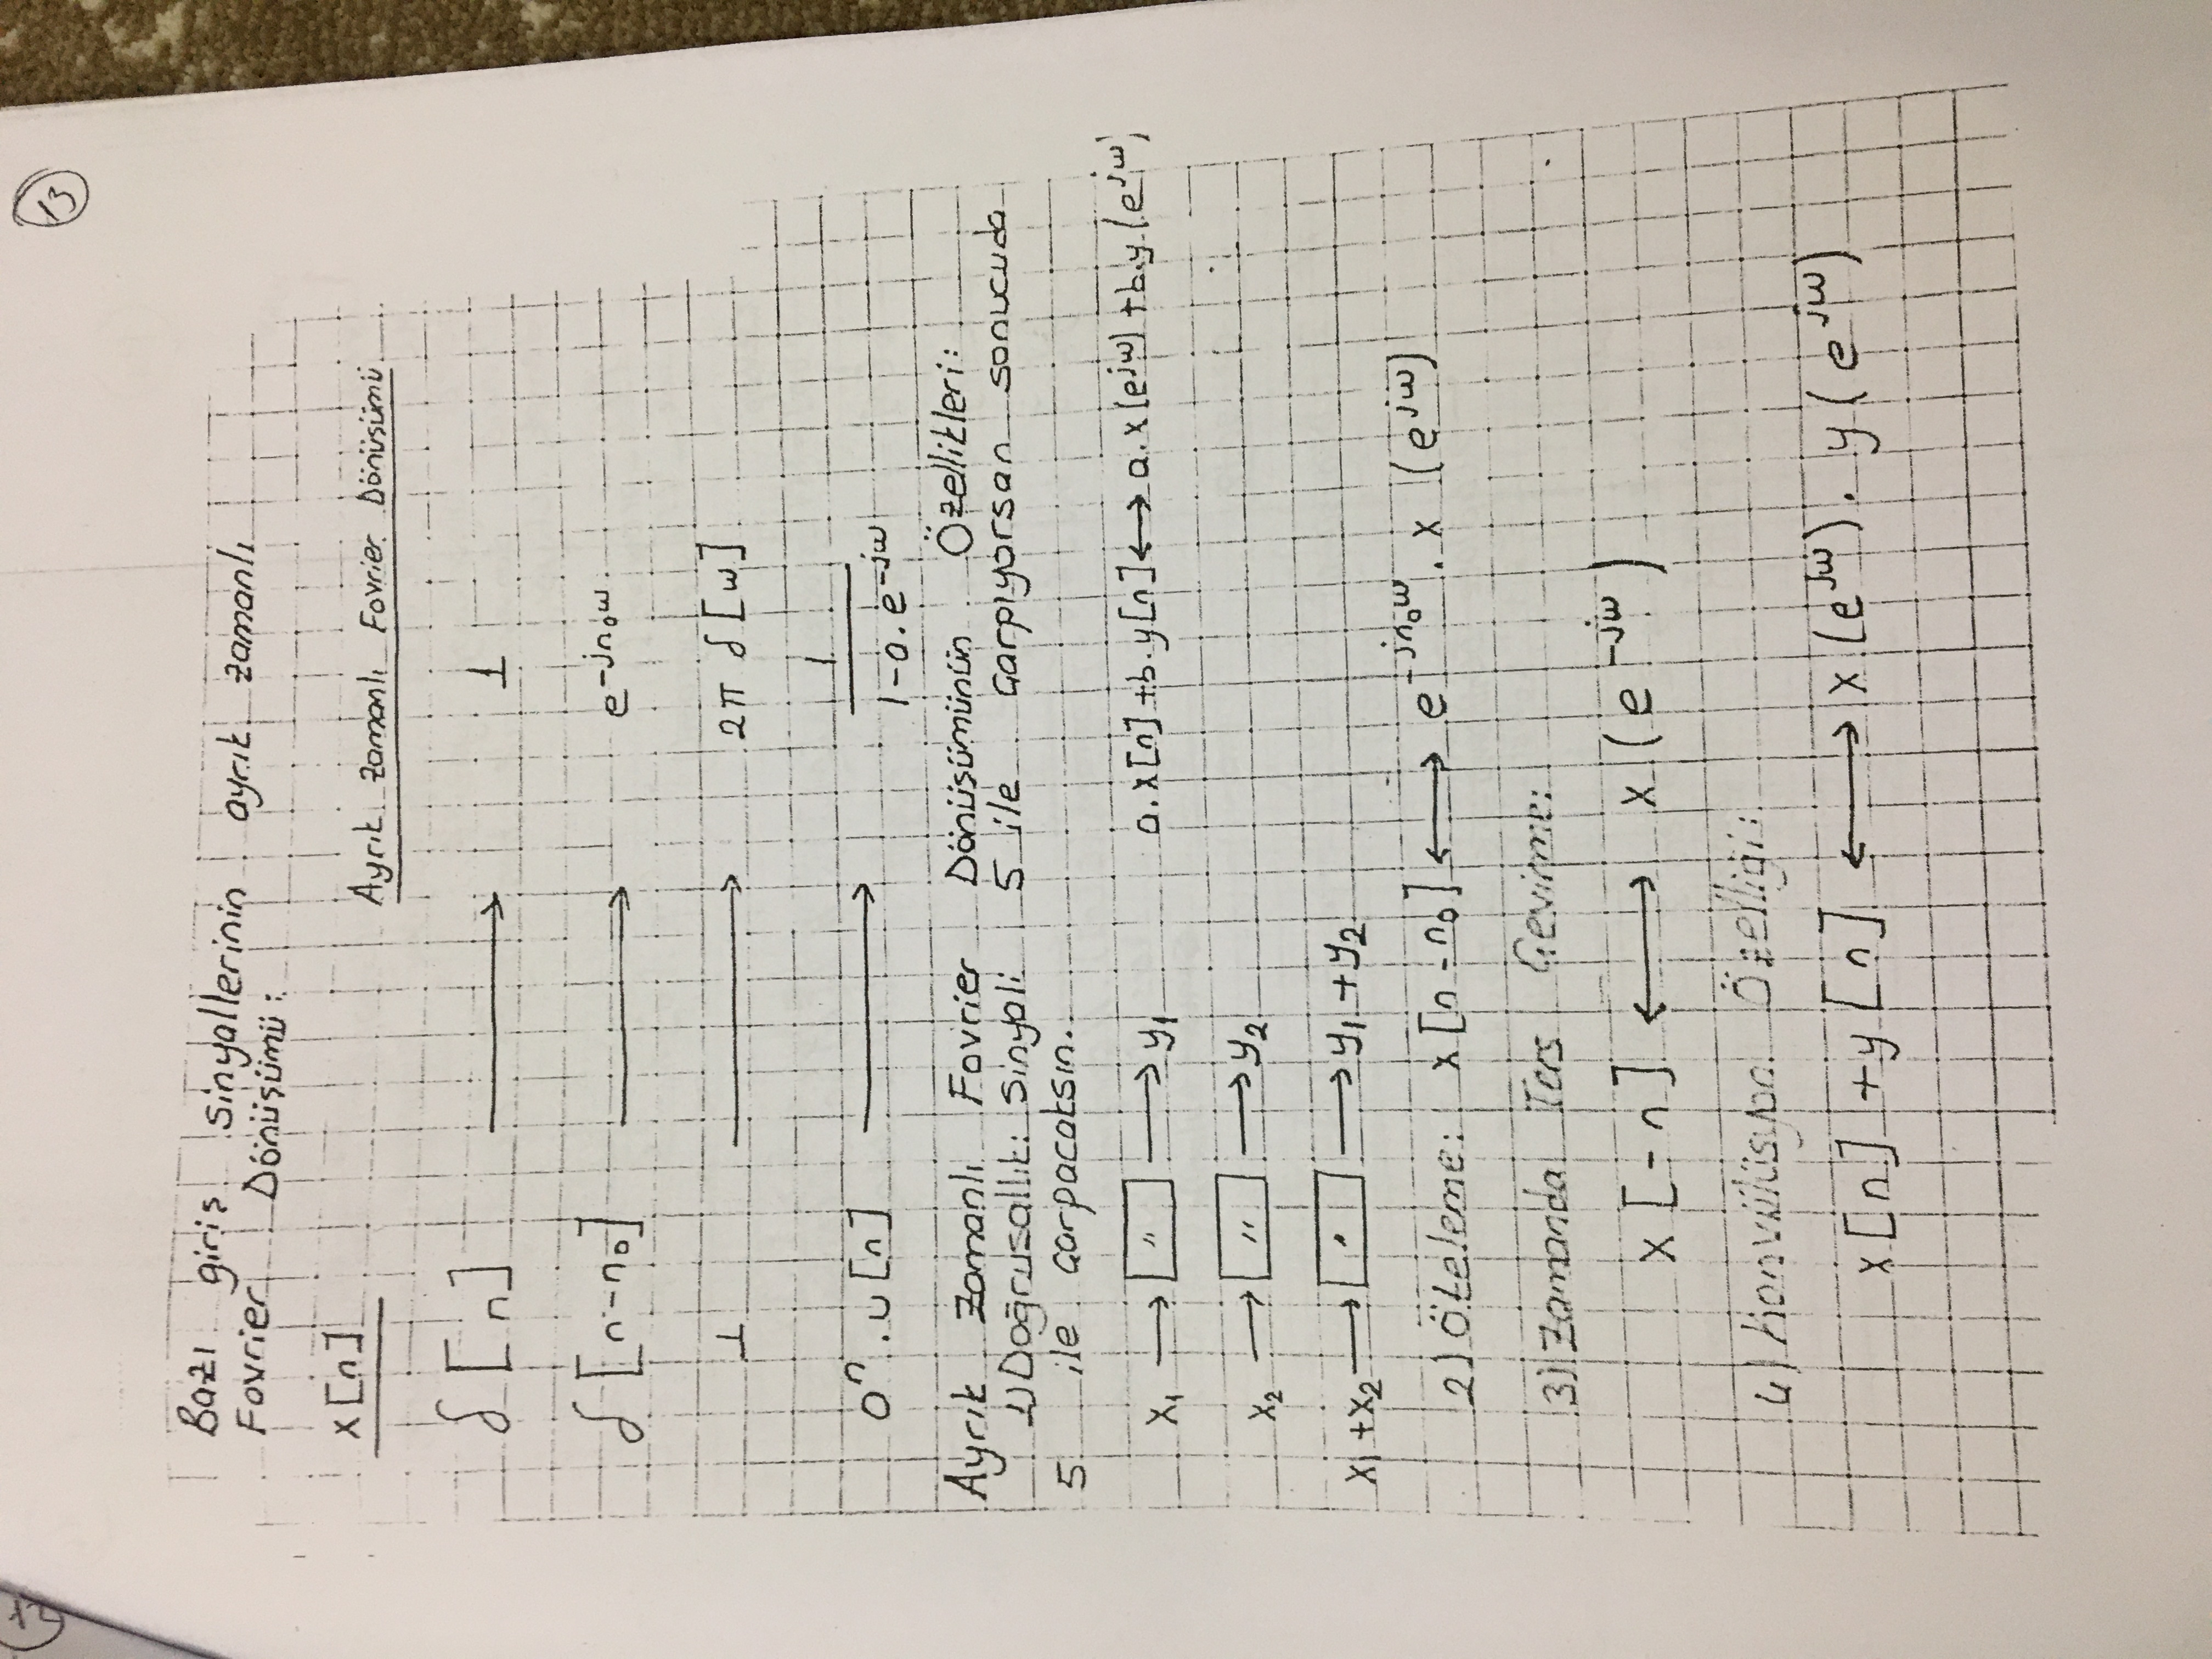 13
Bazı giriş sinyallerinin ayrık zamanlı
Fovrier Dönüşümü:
x[n]
Ayrık Zamanlı Fovrier Dönüşümü
δ[n] → 1
δ[n-n₀] → e^-jn₀w
1 → 2π δ[w]
a^n . u[n] → 1 / 1-a.e^-jw
Ayrık Zamanlı Fovrier Dönüşümünün Özellikleri:
1) Doğrusallık: Sinyali 5 ile çarpıyorsan sonucuda
5 ile çarpacaksın.
x₁ → " → y₁
a.x[n]+b.y[n] ↔ a.x(e^jw)+b.y(e^jw)
x₂ → " → y₂
x₁+x₂ → . → y₁+y₂
2) Öteleme: x[n-n₀] ↔ e^-jn₀w . x(e^jw)
3) Zamanda Ters Çevirme:
x[-n] ↔ x(e^-jw)
4) Konvülüsyon Özelliği:
x[n]+y[n] ↔ x(e^jw).y(e^jw)